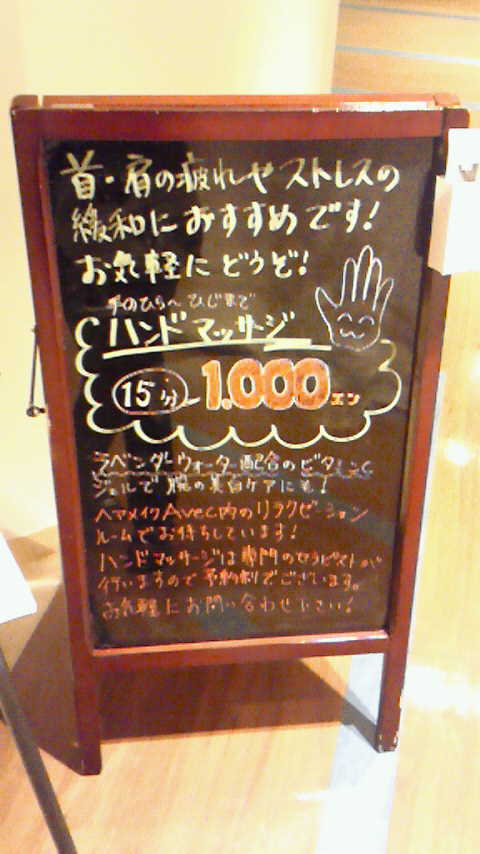 首・肩の疲れやストレスの
緩和におすすめです！
お気軽にどうぞ！
手のひら〜ひじまで
ハンドマッサージ
15分〜 1.000エン
ラベンダーウォーター配合のビタミンC
ジェルで腕の美白ケアにも！
ヘアメイクAvec内のリラクゼーション
ルームでお待ちしています！
ハンドマッサージは専門のセラピストが
行いますので予約制でございます。
お気軽にお問い合わせ下さい！